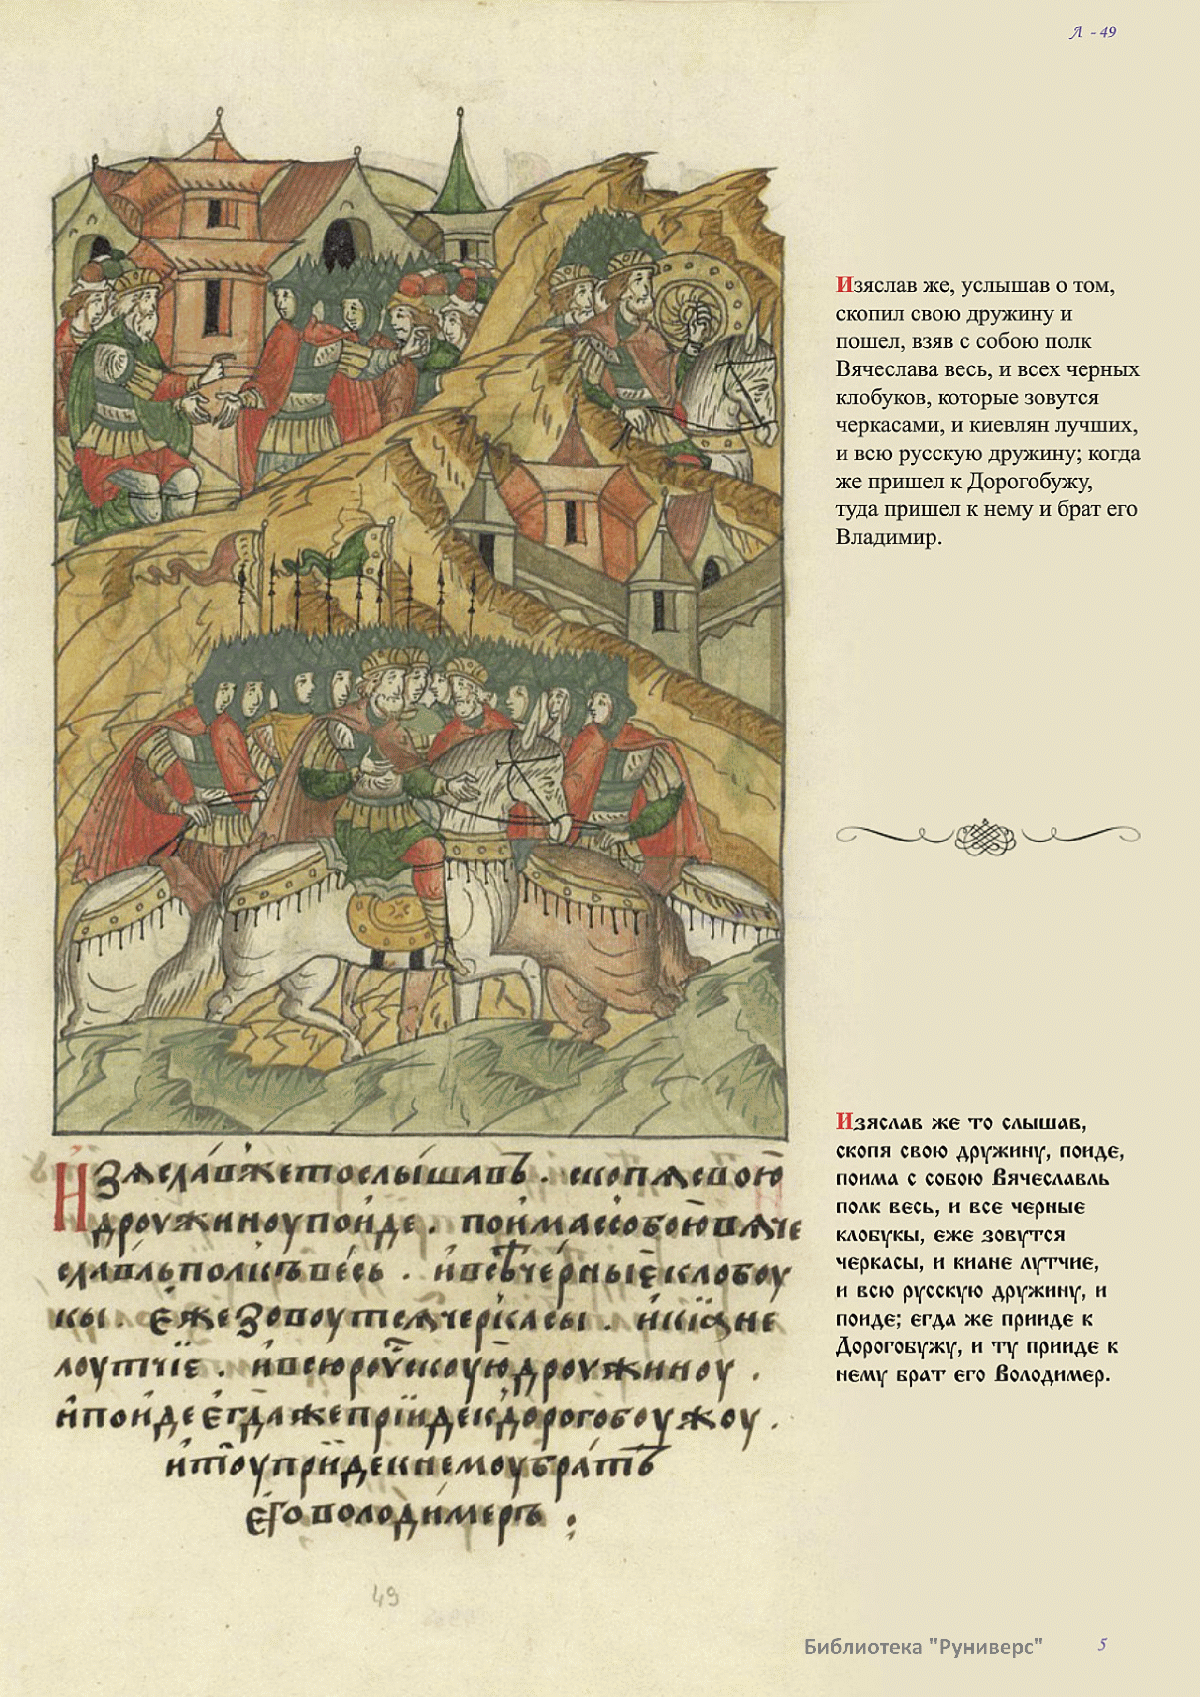 Л - 49
Изяслав же, услышав о том,
скопил свою дружину и
пошел, взяв с собою полк
Вячеслава весь, и всех черных
клобуков, которые зовутся
черкасами, и киевлян лучших,
и всю русскую дружину; когда
же пришел к Дорогобужу,
туда пришел к нему и брат его
Владимир.
Изяслав же то слышав,
скопя свою дружину, поиде,
поима с собою Вячеславль
полк весь, и все черные
клобукы, еже зовутся
черкасы, и киане лутчие,
и всю русскую дружину, и
поиде; егда же прииде к
Дорогобужу, и ту прииде к
нему брат его Володимер.
Изяславжетослышавъ . скопясвою
дроужиноупоиде . поимассобоювяче
славльполкъвесь . ивсѣчерныѣклобоу
кы . ежезовоутсячеркасы . икіяне
лоутчїе . ивсюроускоуюдроужиноу .
ипоидеегдажепрїидекдорогобоужоу .
итоупрїидекнемоубратъ
еговолодимеръ :
49
Библиотека "Руниверс"
5